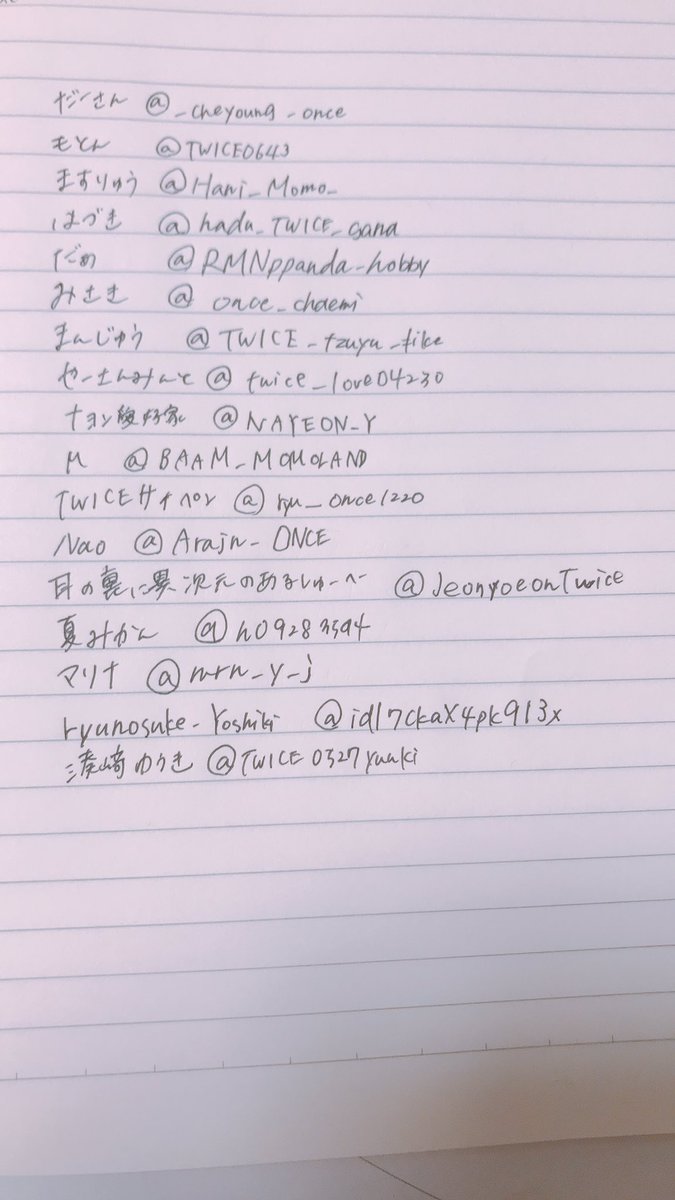 だーさん @_cheyoung_once
もとん @TWICE0643
ますりゅう @Hani_Momo_
はづき @hadu_TWICE_sana
だめ @RMNppanda_hobby
みさき @once_chaemi
まんじゅう @TWICE_tzuyu_like
やーさんみんと @twice_love04230
ナヨン愛好家 @NAYEON_Y
μ @BAAM_MOMOLAND
TWICEサイペン @ryu_once1220
Nao @Arajn_ONCE
耳の裏に異次元のあるしゅーへー @JeonyoeonTwice
夏みかん @h09283594
マリナ @mrn_y_j
ryunosuke_Yoshiki @id17ckaX4pk913x
湊崎ゆうき @TWICE0327yuuki